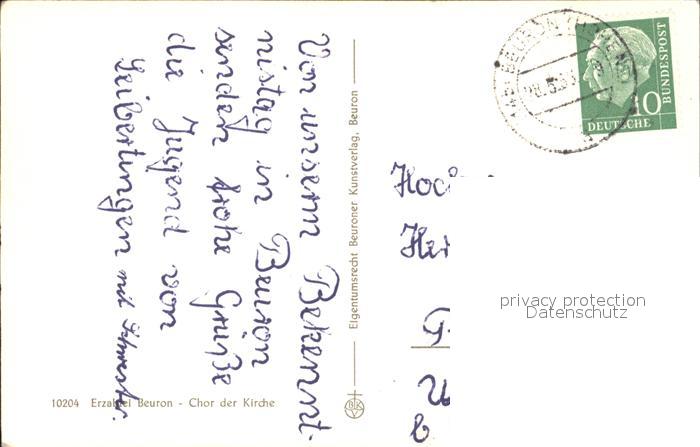 Von unserm Bekennt-
nistag in Beuron
senden frohe Grüße
die Jugend von
Leibertingen mit
Eigentumsrecht Beuroner Kunstverlag, Beuron
10204 Erzabtei Beuron - Chor der Kirche
BEURON
10
DEUTSCHE
BUNDESPOST
privacy protection
Datenschutz